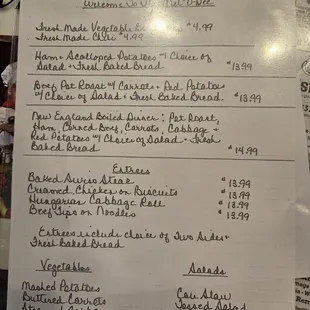 Welcome To The
Fresh Made Vegetable $4.99
Fresh Made Chili $4.99
Ham + Scalloped Potatoes w/ Choice of
Salad + Fresh Baked Bread $13.99
Beef Pot Roast w/ Carrots + Red Potatoes
w/ Choice of Salad + Fresh Baked Bread $13.99
New England Boiled Dinner: Pot Roast,
Ham, Corned Beef, Carrots, Cabbage +
Red Potatoes w/ Choice of Salad + Fresh
Baked Bread $14.99
Entrees
Baked Swiss Steak $13.99
Creamed Chicken on Biscuits $13.99
Hungarian Cabbage Roll $13.99
Beef Tips on Noodles $13.99
Entrees include choice of Two Sides +
Fresh Baked Bread
Vegetables Salads
Mashed Potatoes
Buttered Carrots Cole Slaw
Tossed Salad